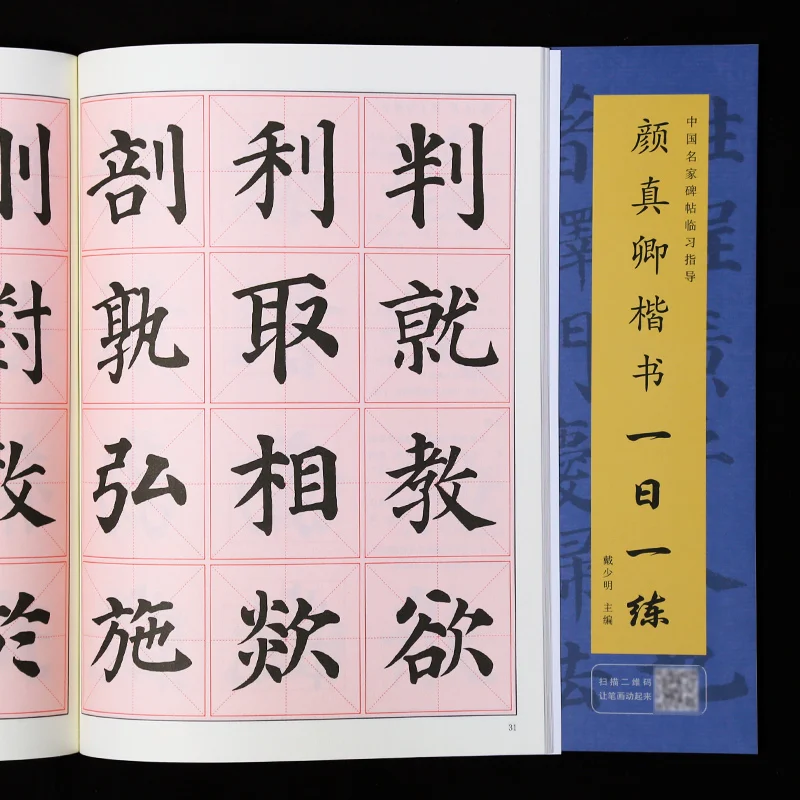 剖 利 判
孰 取 就
弘 相 教
施 欻 欲
31
中国名家碑帖临习指导
颜真卿楷书一日一练
戴少明 主编
扫描二维码
让笔画动起来